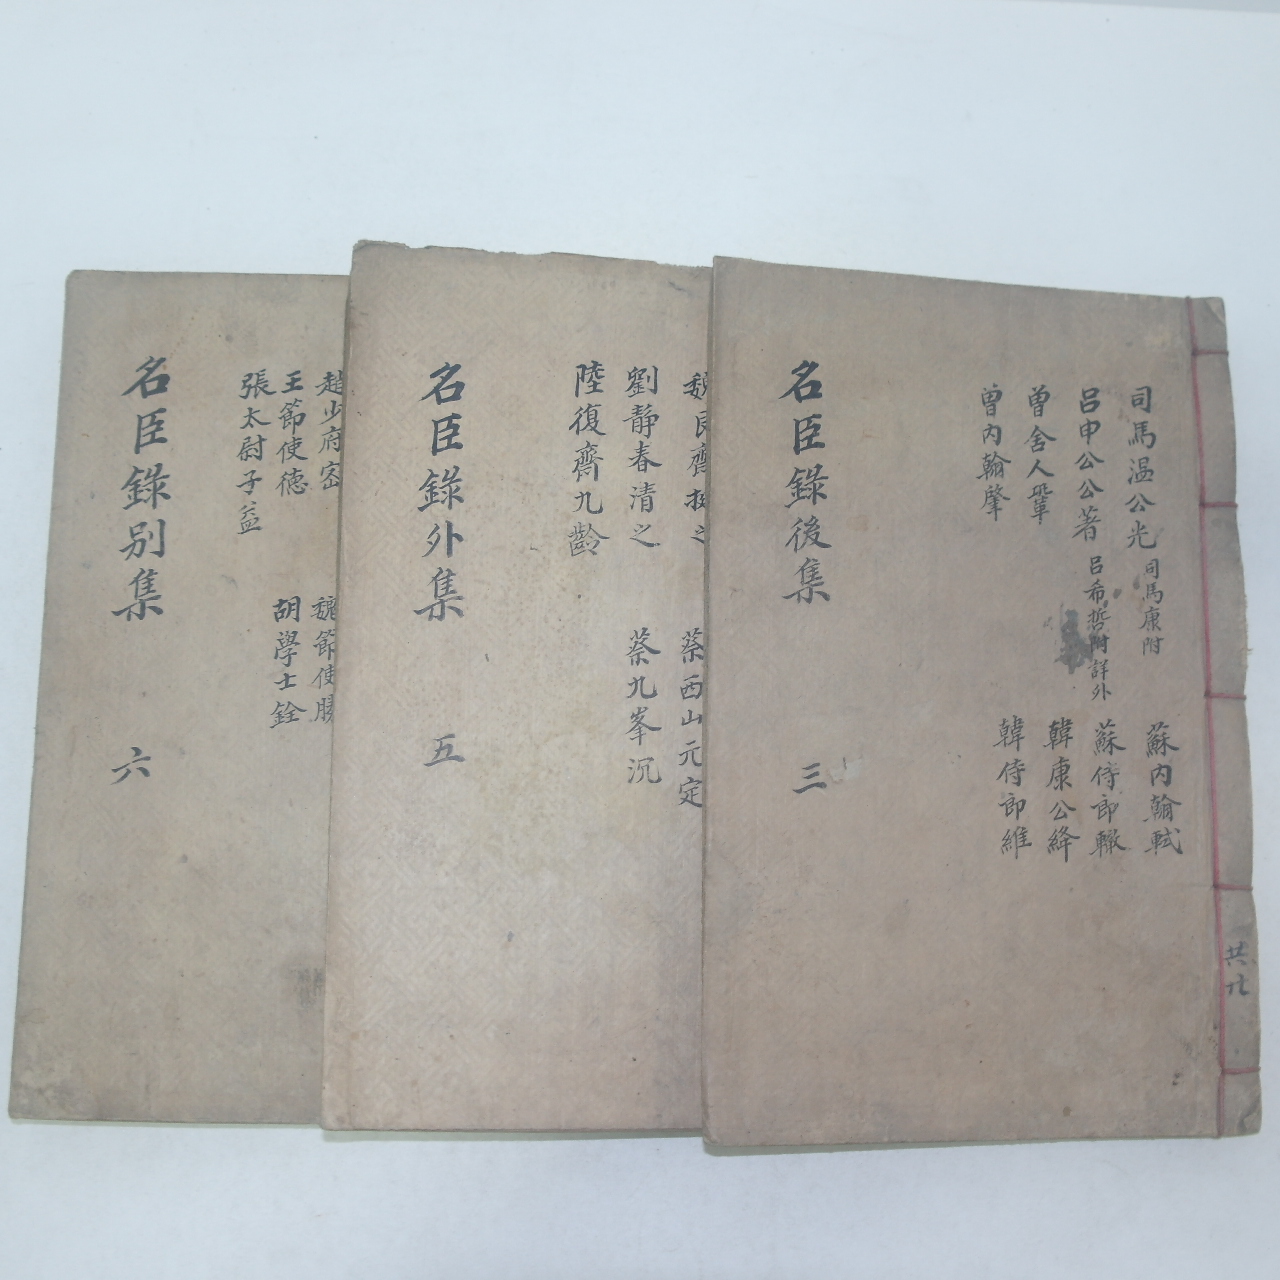 司馬温公光 司馬康附
呂申公公著 呂希哲附詳外
曾舍人鞏
曾內翰肇
蘇內翰軾
蘇侍郎轍
韓康公絳
韓侍郎維
名臣錄後集
三
共九
魏艮齋挺之
劉靜春清之
陸復齋九齡
蔡西山元定
蔡九峯沉
名臣錄外集
五
趙少府密
王節使德
張太尉子益
魏節使勝
胡學士銓
名臣錄別集
六